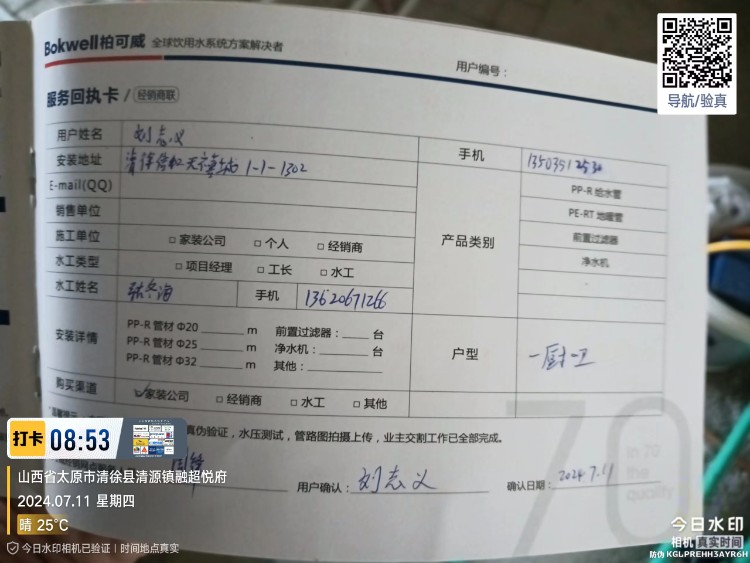 Bokwell柏可威 全球饮用水系统方案解决者
导航/验真
用户编号：
服务回执卡 / 经销商联
用户姓名 刘志义 手机 13503512530
安装地址 1-1-1302
E-mail(QQ) 产品类别 PP-R 给水管
销售单位 PE-RT 地暖管
施工单位 □家装公司 □个人 □经销商 前置过滤器
水工类型 □项目经理 □工长 □水工 净水机
水工姓名 手机 13620671266
安装详情 PP-R 管材 Φ20 m 前置过滤器： 台 户型 一厨一卫
PP-R 管材 Φ25 m 净水机： 台
PP-R 管材 Φ32 m 其他：
购买渠道 ✓家装公司 □经销商 □水工 □其他
真伪验证，水压测试，管路图拍摄上传，业主交割工作已全部完成。
用户确认： 刘志义 确认日期： 2024.7.11
70
in 70
the
quality
打卡 08:53
山西省太原市清徐县清源镇融超悦府
2024.07.11 星期四
晴 25°C
今日水印相机已验证 | 时间地点真实
今日水印
相机 真实时间
防伪 KGLPREHH3AYR6H